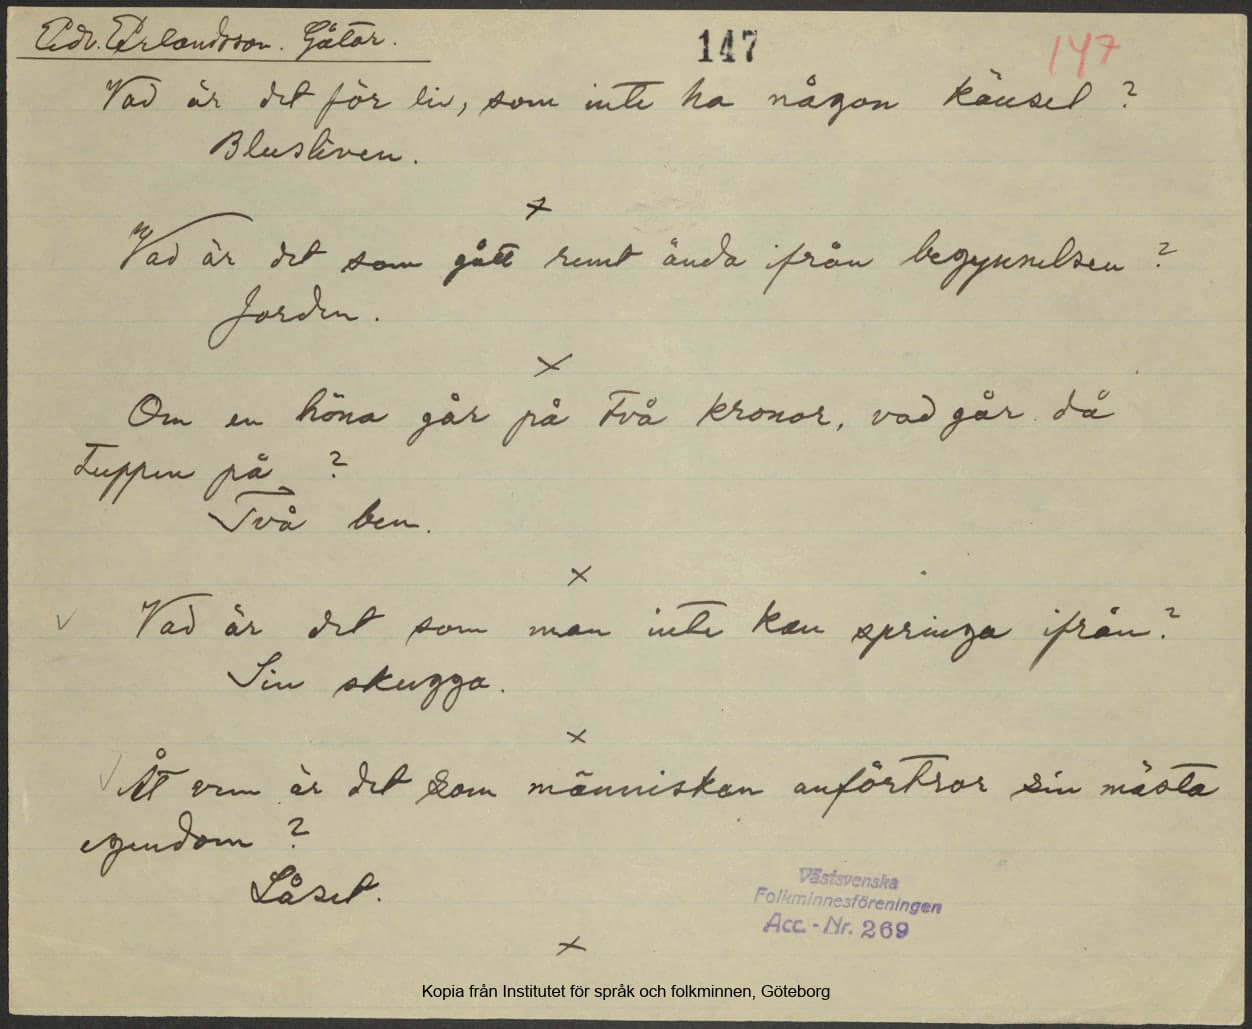 Edv. Erlandsson. Gåtor.
147
147
Vad är det för liv, som inte ha någon känsel ?
Blusliven.
x
Vad är det som gått runt ända ifrån begynnelsen ?
Jorden.
x
Om en höna går på två kronor, vad går då
tuppen på ?
Två ben.
x
Vad är det som man inte kan springa ifrån ?
Sin skugga.
x
Åt vem är det som människan anförtror sin mästa
egendom ?
Låset.
Västsvenska
Folkminnesföreningen
Acc. - Nr. 269
x
Kopia från Institutet för språk och folkminnen, Göteborg